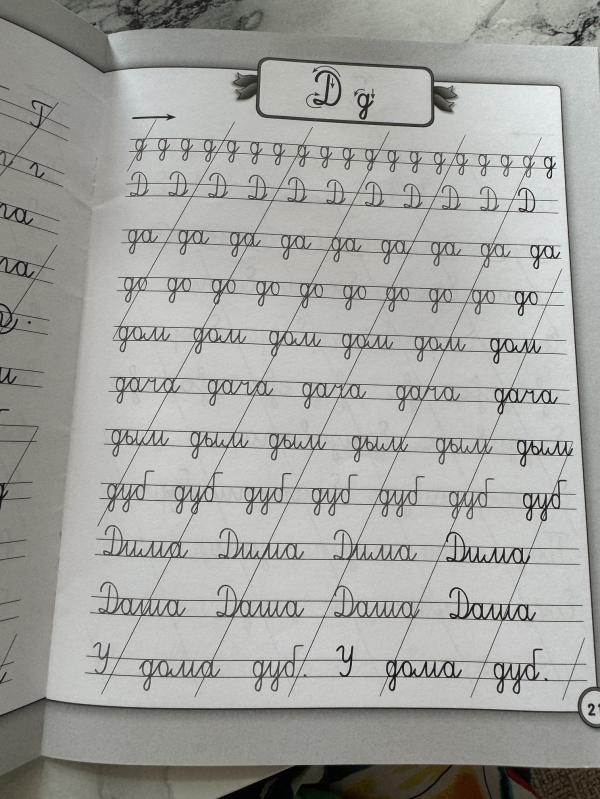 Д д
д д д д д д д д д д д д д д д д д д д
Д Д Д Д Д Д Д Д Д Д Д
да да да да да да да да да
до до до до до до до до до до
дом дом дом дом дом дом
дача дача дача дача дача
дым дым дым дым дым дым
дуб дуб дуб дуб дуб дуб дуб
Дима Дима Дима Дима
Даша Даша Даша Даша
У дома дуб. У дома дуб.